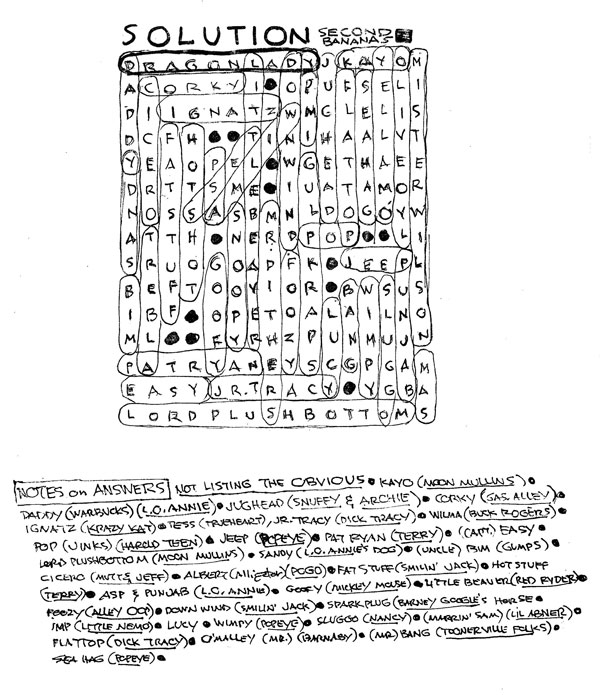 SOLUTION SECOND BANANAS
D R A G O N L A D Y J K A Y O M
A C O R K Y I O P U F S E L I
D I I G N A T Z W M G L E L I S
D C F H T I N I H A A L V T
Y E A O P E L W G E T H A E E
D R T P S M E I U A T A M O R
N O S S A S B M N L D O G O Y W
A T T H N E R D P O P L I
S R U O G O A D F K J E E P L
B E F T O O Y I O R B W S U S
I B F O O P E T O A L A I L N O
M L F Y R H Z P U N M U J N
P A T R Y A N E Y S C G P G A M
E A S Y J R. T R A C Y Y G B A
L O R D P L U S H B O T T O M S
NOTES on ANSWERS NOT LISTING THE OBVIOUS • KAYO (MOON MULLINS) •
DADDY (WARBUCKS) (L.O. ANNIE) • JUGHEAD (SNUFFY & ARCHIE) • CORKY (GAS. ALLEY) •
IGNATZ (KRAZY KAT) • TESS (TRUEHEART), JR. TRACY (DICK TRACY) • WILMA (BUCK ROGERS) •
POP (JINKS) (HAROLD TEEN) • JEEP (POPEYE) • PAT RYAN (TERRY) • (CAPT.) EASY •
LORD PLUSHBOTTOM (MOON MULLINS) • SANDY (L.O. ANNIE'S DOG) • (UNCLE) BIM (GUMPS) •
CICERO (MUTT & JEFF) • ALBERT (ALLIGATOR) (POGO) • FAT STUFF (SMILIN' JACK) • HOT STUFF
(TERRY) • ASP & PUNJAB (L.O. ANNIE) • GOOFY (MICKEY MOUSE) • LITTLE BEAVER (RED RYDER) •
FOOZY (ALLEY OOP) • DOWN WIND (SMILIN' JACK) • SPARK PLUG (BARNEY GOOGLE'S HORSE •
IMP (LITTLE NEMO) • LUCY • WIMPY (POPEYE) • SLUGGO (NANCY) • (MARRIN' SAM) (LIL ABNER) •
FLATTOP (DICK TRACY) • O'MALLEY (MR.) (BARNABY) • (MR.) BANG (TOONERVILLE FOLKS) •
SEA HAG (POPEYE) •